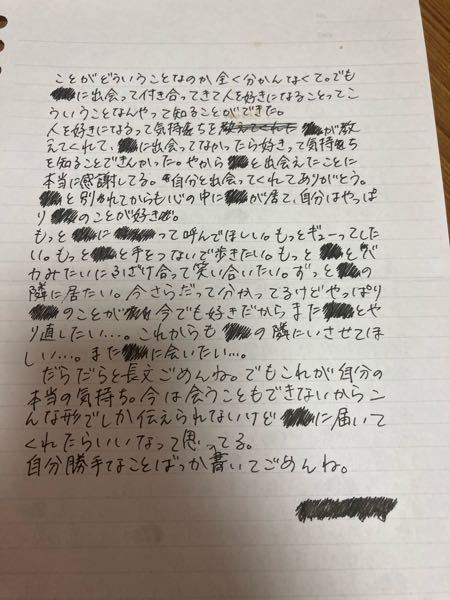 ことがどういうことなのか全く分かんなくて。でも
に出会って付き合ってきて人を好きになることってこ
ういうことなんやって知ることができた。
人を好きになるって気持ちを が教
えてくれて、 に出会ってなかったら好きって気持ち
を知ることできんかった。やから と出会えたことに
本当に感謝してる。自分と出会ってくれてありがとう。
と別れてからも心の中に が居て、自分はやっぱ
り のことが好き。
もっと に って呼んでほしい。もっとギューってした
い。もっと と手をつないで歩きたい。もっと とバ
カみたいにふざけ合って笑い合いたい。ずっと の
隣に居たい。今さらだって分かってるけどやっぱり
のことが 今でも好きだから また とや
り直したい…。これからも の隣にいさせてほ
しい…。また に会いたい…。
だらだらと長文ごめんね。でもこれが自分の
本当の気持ち。今は会うこともできないからこ
んな形でしか伝えられないけど に届いて
くれたらいいなって思ってる。
自分勝手なことばっか書いてごめんね。